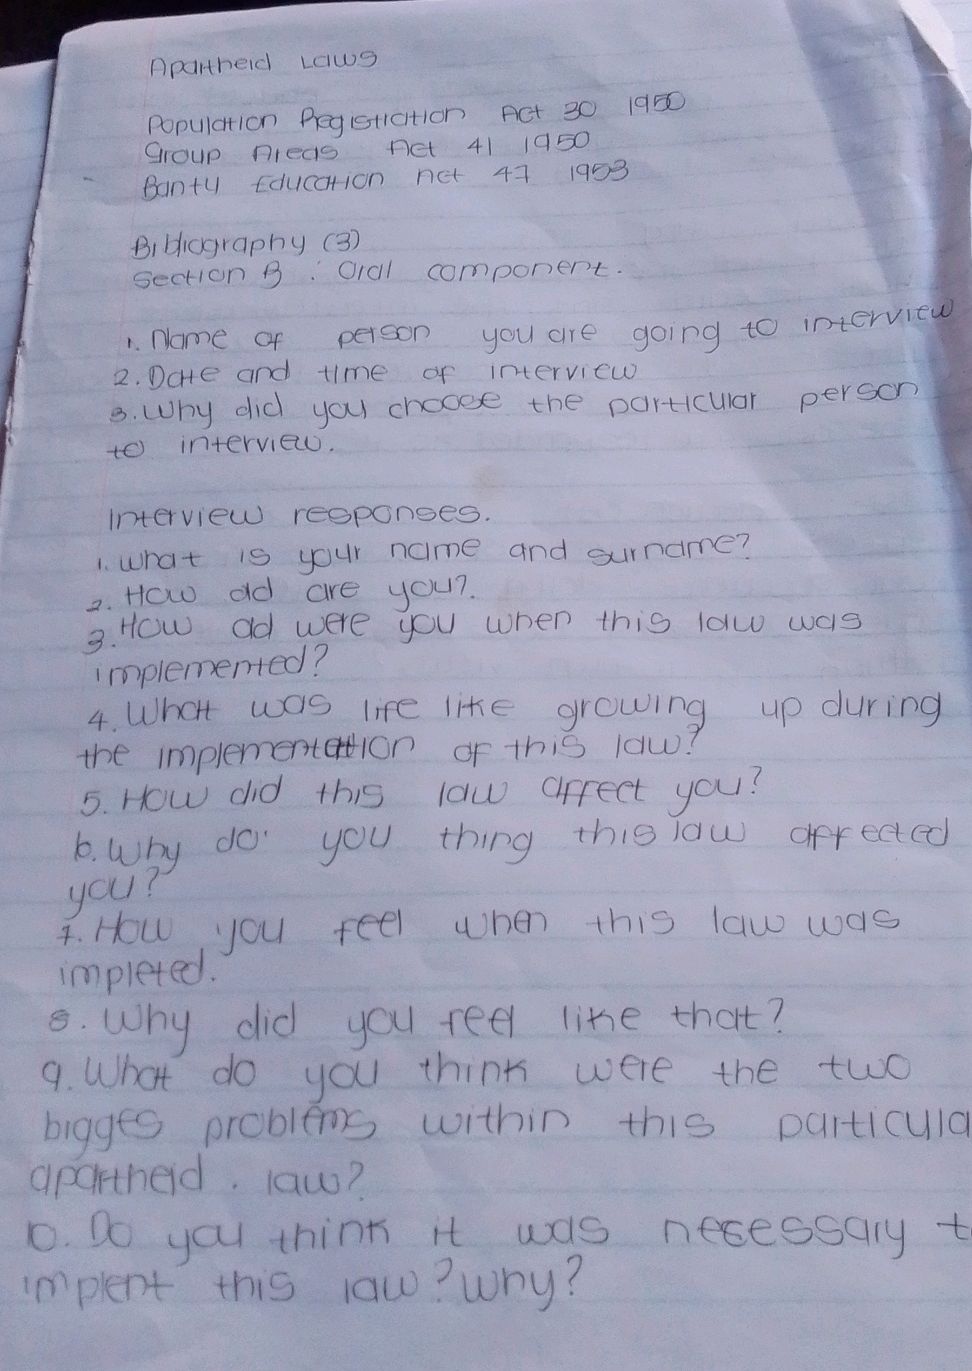 Apartheid Laws
Population Registration Act 30 1950
Group Areas Act 41 1950
Banty Education Act 47 1953
Bibliography (3)
Section B : Oral component.
1. Name of person you are going to interview
2. Date and time of interview
3. Why did you choose the particular person
to interview.
Interview responses.
1. What is your name and surname?
2. How old are you?
3. How old were you when this law was
implemented?
4. What was life like growing up during
the implementation of this law?
5. How did this law affect you?
6. Why do you thing this law affected
you?
7. How you feel when this law was
impleted.
8. Why did you feel like that?
9. What do you think were the two
bigges problems within this particula
apartheid . law?
10. Do you think it was necessary t
implent this law? why?